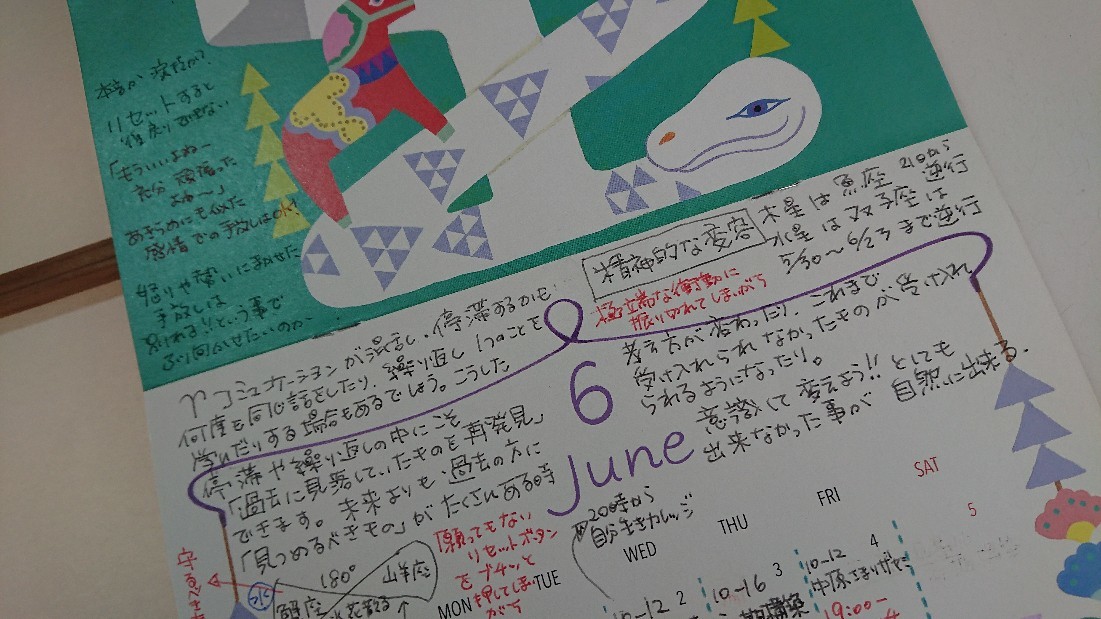 リセットすると
後戻りできない
「もういいよねー
充分頑張った
よね〜」
あきらめにも似た
感情での手放しはOK!
怒りや勢いにまかせた
手放しは
別れるりという事で
ふり向かせたいのか
精神的な変容
木星は魚座 21日から逆行
水星は双子座は
5/30〜6/23まで逆行
極立端な衝動に
振り切れてしまいがち
考え方が変わったり、これまで
受け入れられなかったものが受け入れ
られるようになったり。
意識して変えよう!! とても
出来なかった事が自然に出来る.
コミュニケーションが混乱し、停滞するかも
何度も同じ話をしたり、繰り返し1つのことを
学んだりする場合もあるでしょう。こうした
停滞や繰り返しの中にこそ
「過去に見落していたものを再発見」
できます。未来よりも、過去の方に
「見つめるべきもの」がたくさんある時
6
June
「願ってもない
リセットボタン
をブチッと
押してしまい
がち
180°
山羊座
蟹座
20時から
自分生きカレッジ
MON
TUE
WED
THU
FRI
SAT
2
10-12
3
10-16
4
10-12
5
19:00-